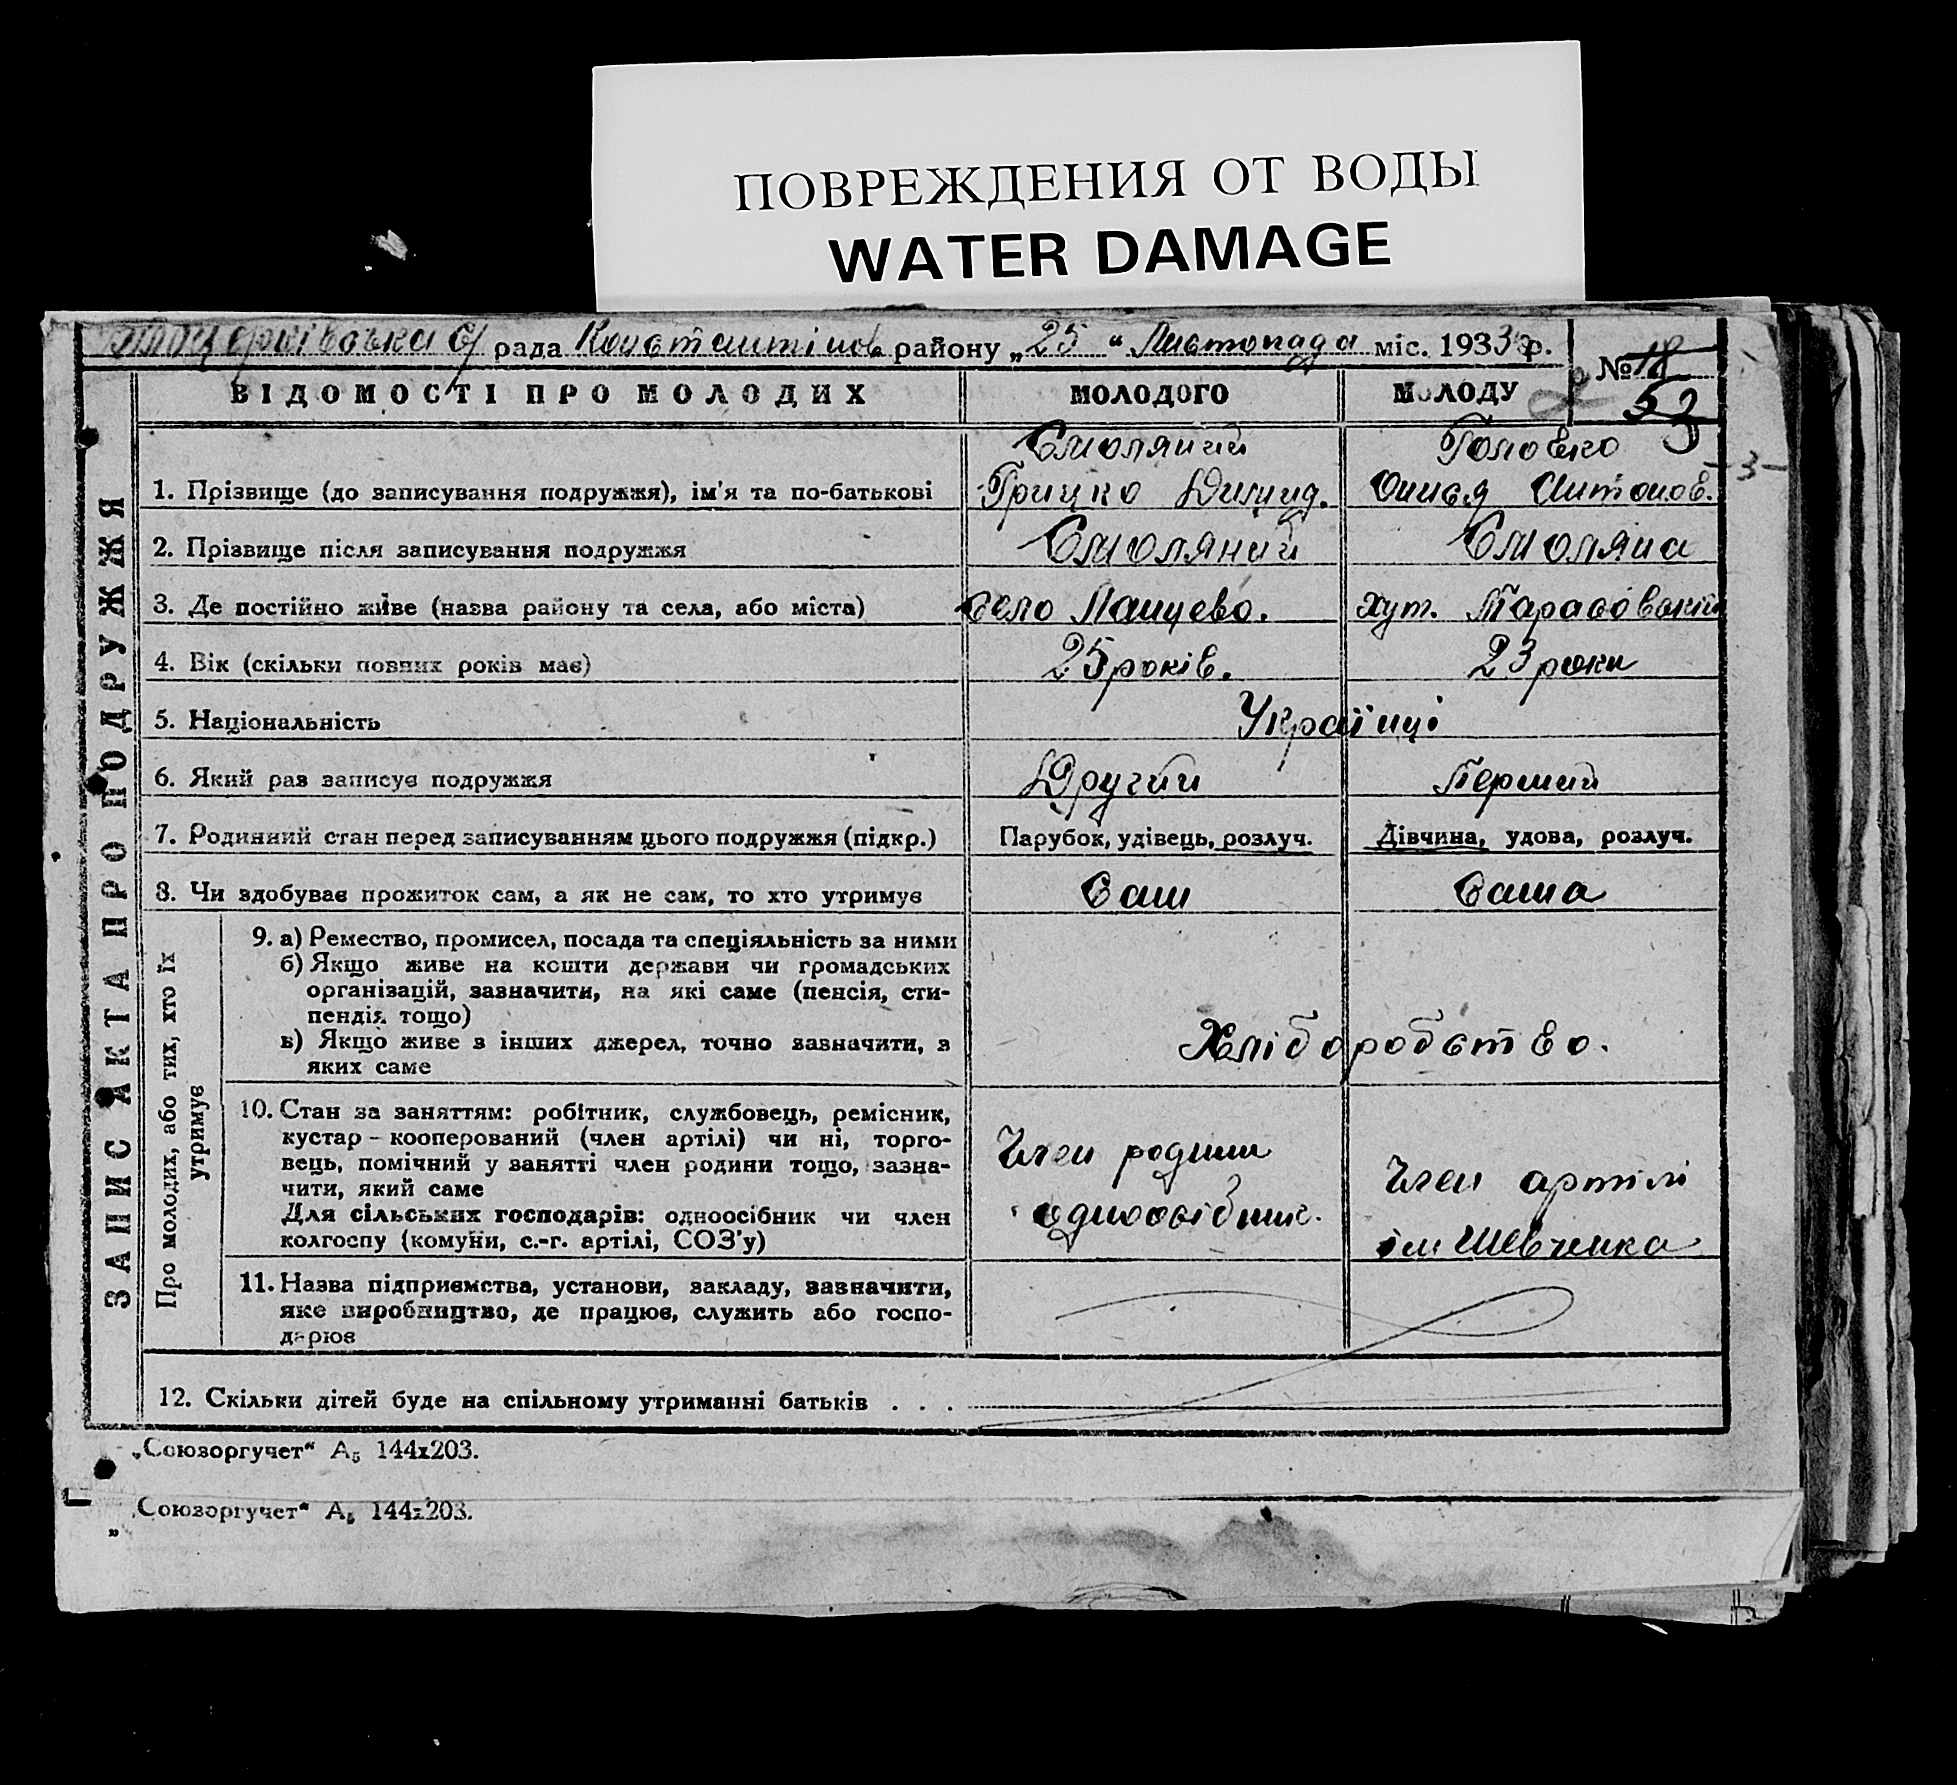 ПОВРЕЖДЕНИЯ ОТ ВОДЫ
WATER DAMAGE
рада Константінов району „25“ Листопада міс. 1933 р.
№ 18
53
ВІДОМОСТІ ПРО МОЛОДИХ МОЛОДОГО МОЛОДУ
Смоляний Головко
-3-
1. Прізвище (до записування подружжя), ім'я та по-батькові Грицко Антонов.
2. Прізвище після записування подружжя Смоляний Смоляна
3. Де постійно живе (назва району та села, або міста) село Ланцево. хут. Тарасовский
4. Вік (скільки повних років має) 25 років. 23 роки
5. Національність Українці
6. Який раз записує подружжя Другий Перший
7. Родинний стан перед записуванням цього подружжя (підкр.) Парубок, удівець, розлуч. Дівчина, удова, розлуч.
8. Чи здобуває прожиток сам, а як не сам, то хто утримує Сам Сама
ЗАПИС АКТА ПРО ПОДРУЖЖЯ
Про молодих, або тих, хто їх
утримує
9. а) Ремество, промисел, посада та спеціяльність за ними
б) Якщо живе на кошти держави чи громадських
організацій, зазначити, на які саме (пенсія, сти-
пендія тощо)
в) Якщо живе з інших джерел, точно зазначити, з
яких саме
Хліборобство.
10. Стан за заняттям: робітник, службовець, ремісник,
кустар – кооперований (член артілі) чи ні, торго-
вець, помічний у занятті член родини тощо, зазна-
чити, який саме
Для сільських господарів: одноосібник чи член
колгоспу (комуни, с.-г. артілі, СОЗ'у)
Член родини
одноосібник.
Член артілі
ім Шевченка
11. Назва підприємства, установи, закладу, зазначити,
яке виробництво, де працює, служить або госпо-
дарює
12. Скільки дітей буде на спільному утриманні батьків . . .
„Союзоргучет“ А₅ 144х203.
„Союзоргучет“ А₅ 144х203.